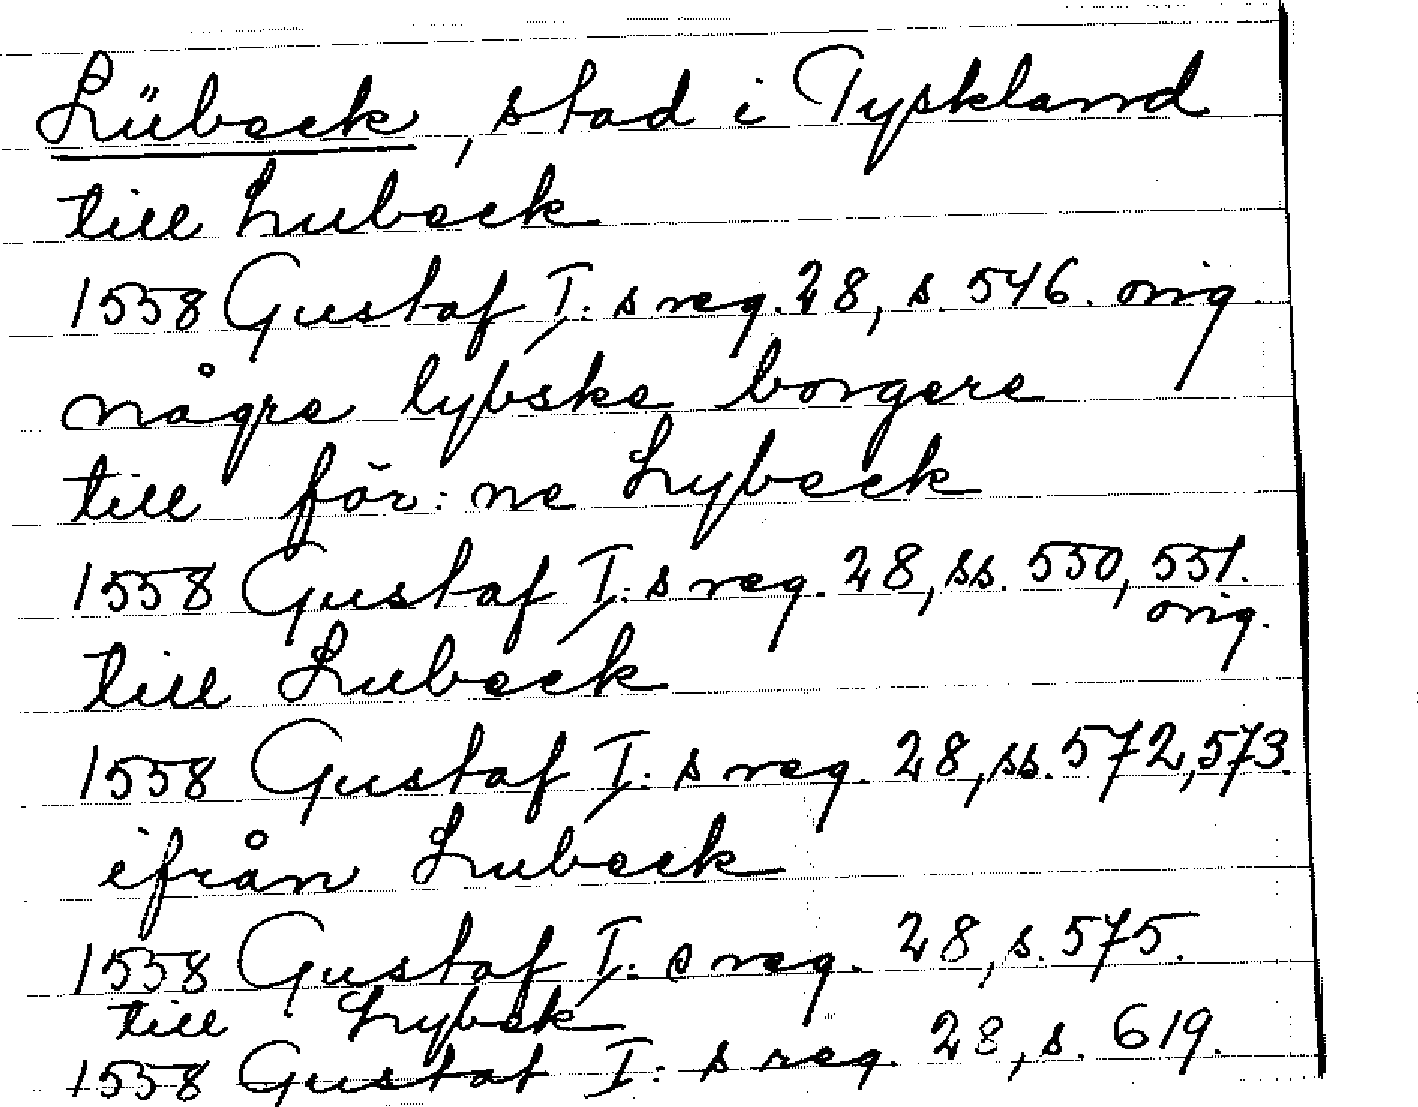 Lübeck, stad i Tyskland
till Lubeck
1558 Gustaf I:s reg. 28, s. 546. orig.
någre lybske borgere
till för:ne Lybeck
1558 Gustaf I:s reg. 28, ss. 550, 551.
orig.
till Lubeck
1558 Gustaf I:s reg. 28, ss. 572, 573.
ifrån Lubeck
1558 Gustaf I:s reg. 28, s. 575.
till Lybek
1558 Gustaf I:s reg. 28, s. 619.